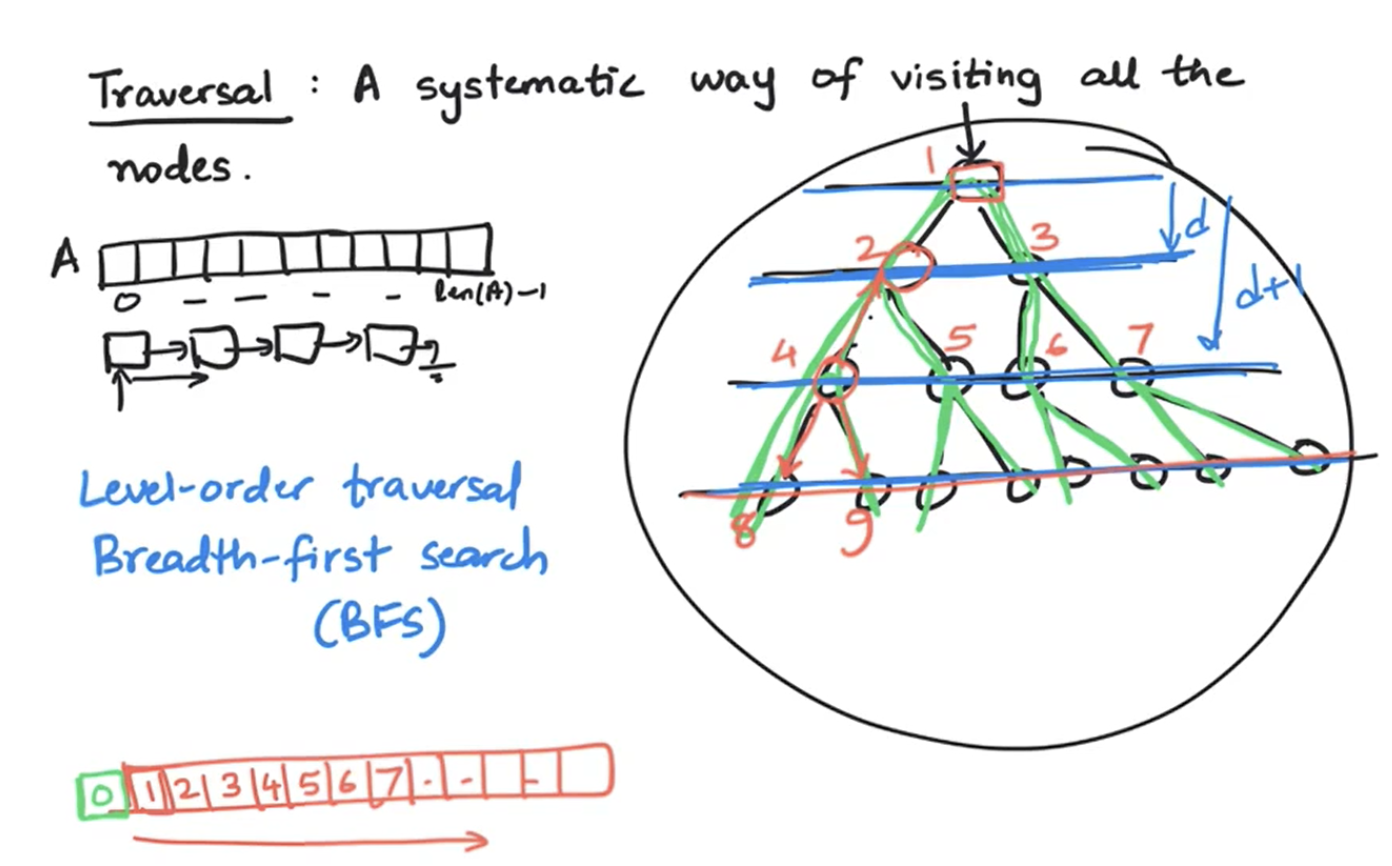 Traversal : A systematic way of visiting all the
nodes.
A
0 - - - - len(A)-1
Level-order traversal
Breadth-first search
(BFS)
1
2 3
4 5 6 7
8 9
d
d+1
0 1 2 3 4 5 6 7 . - -